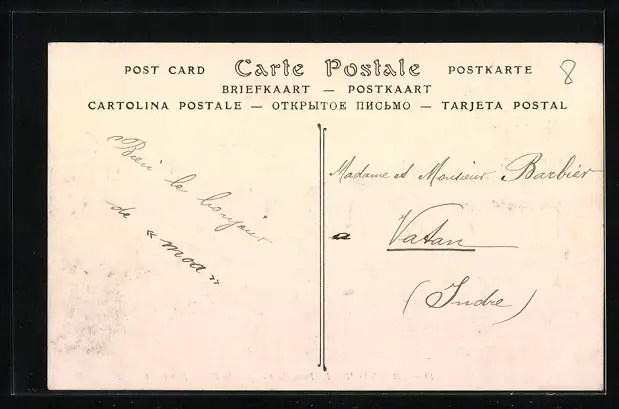 POST CARD Carte Postale POSTKARTE 8
BRIEFKAART — POSTKAART
CARTOLINA POSTALE — ОТКРЫТОЕ ПИСЬМО — TARJETA POSTAL
Bien le bonjour
de « moa »
Madame et Monsieur Barbier
a Vatan
(Indre)